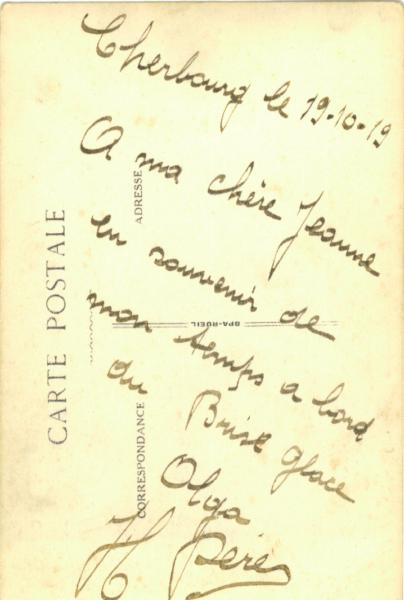 Cherbourg le 19-10-19
A ma chère Jeanne
en souvenir de
mon temps a bord
du Brise Glace
Olga
H Père
CARTE POSTALE
ADRESSE
SPA-RUEIL
CORRESPONDANCE